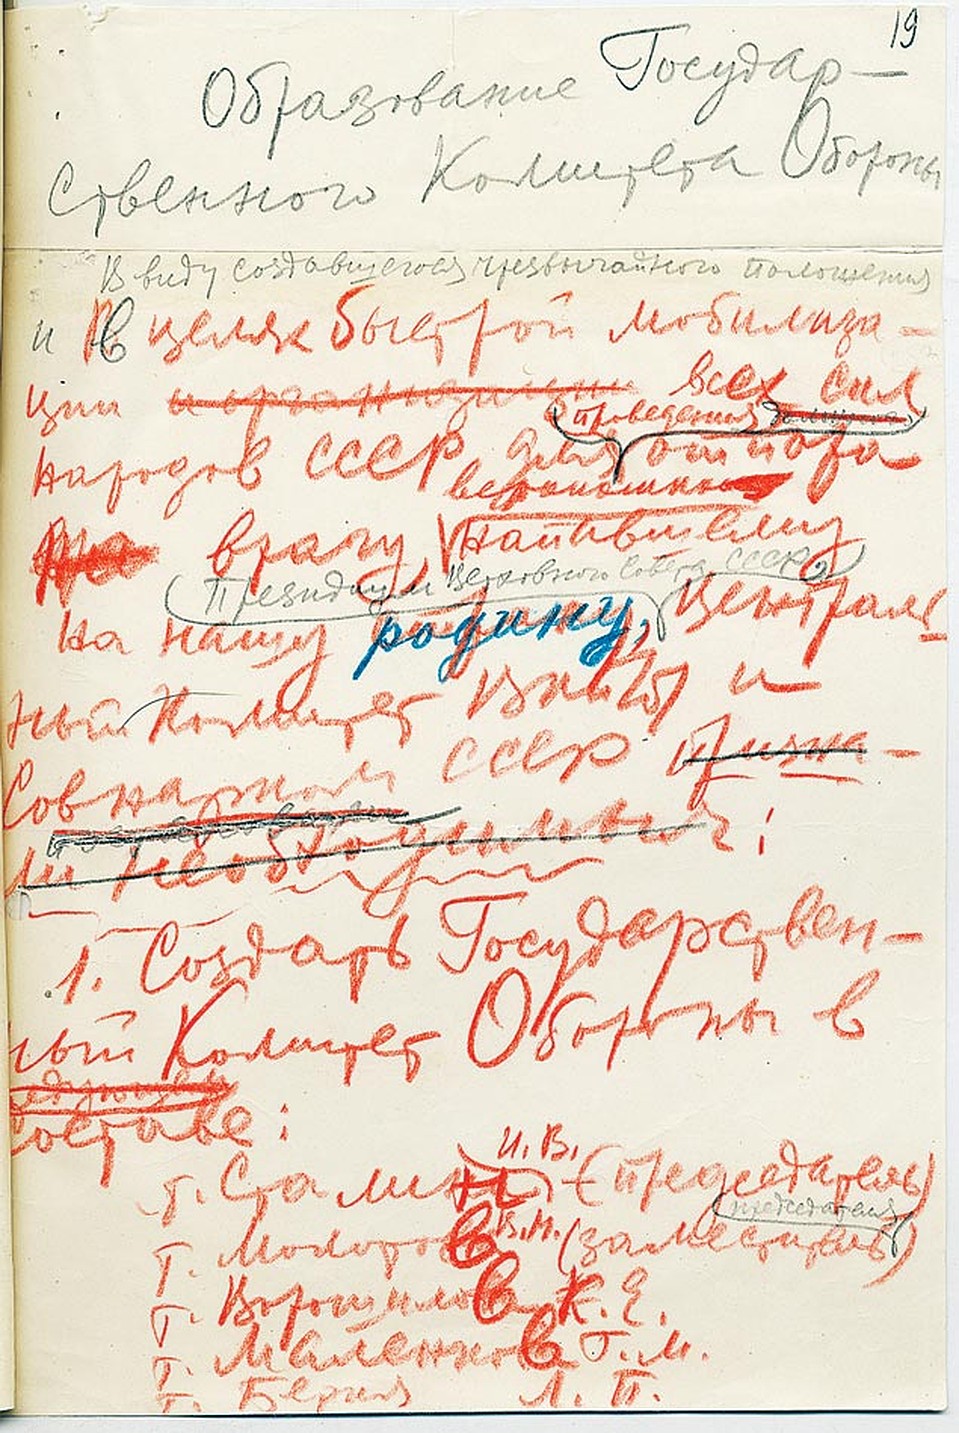 19
Образование Государ-
ственного Комитета Обороны
В виду создавшегося чрезвычайного положения
и В целях быстрой мобилиза-
ции и организации всех сил
проведения
народов СССР для отпора
вероломно
врагу, напавшему
Президиум Верховного Совета СССР,
на нашу родину, Централь
ный Комитет ВКП(б) и
Совнарком СССР призна-
ли необходимым:
1. Создать Государствен-
ный Комитет Обороны в
составе:
И. В.
т. Сталин (председатель)
председателя
т. Молотов В. М. (заместитель)
т. Ворошилов К. Е.
т. Маленков Г. М.
т. Берия Л. П.